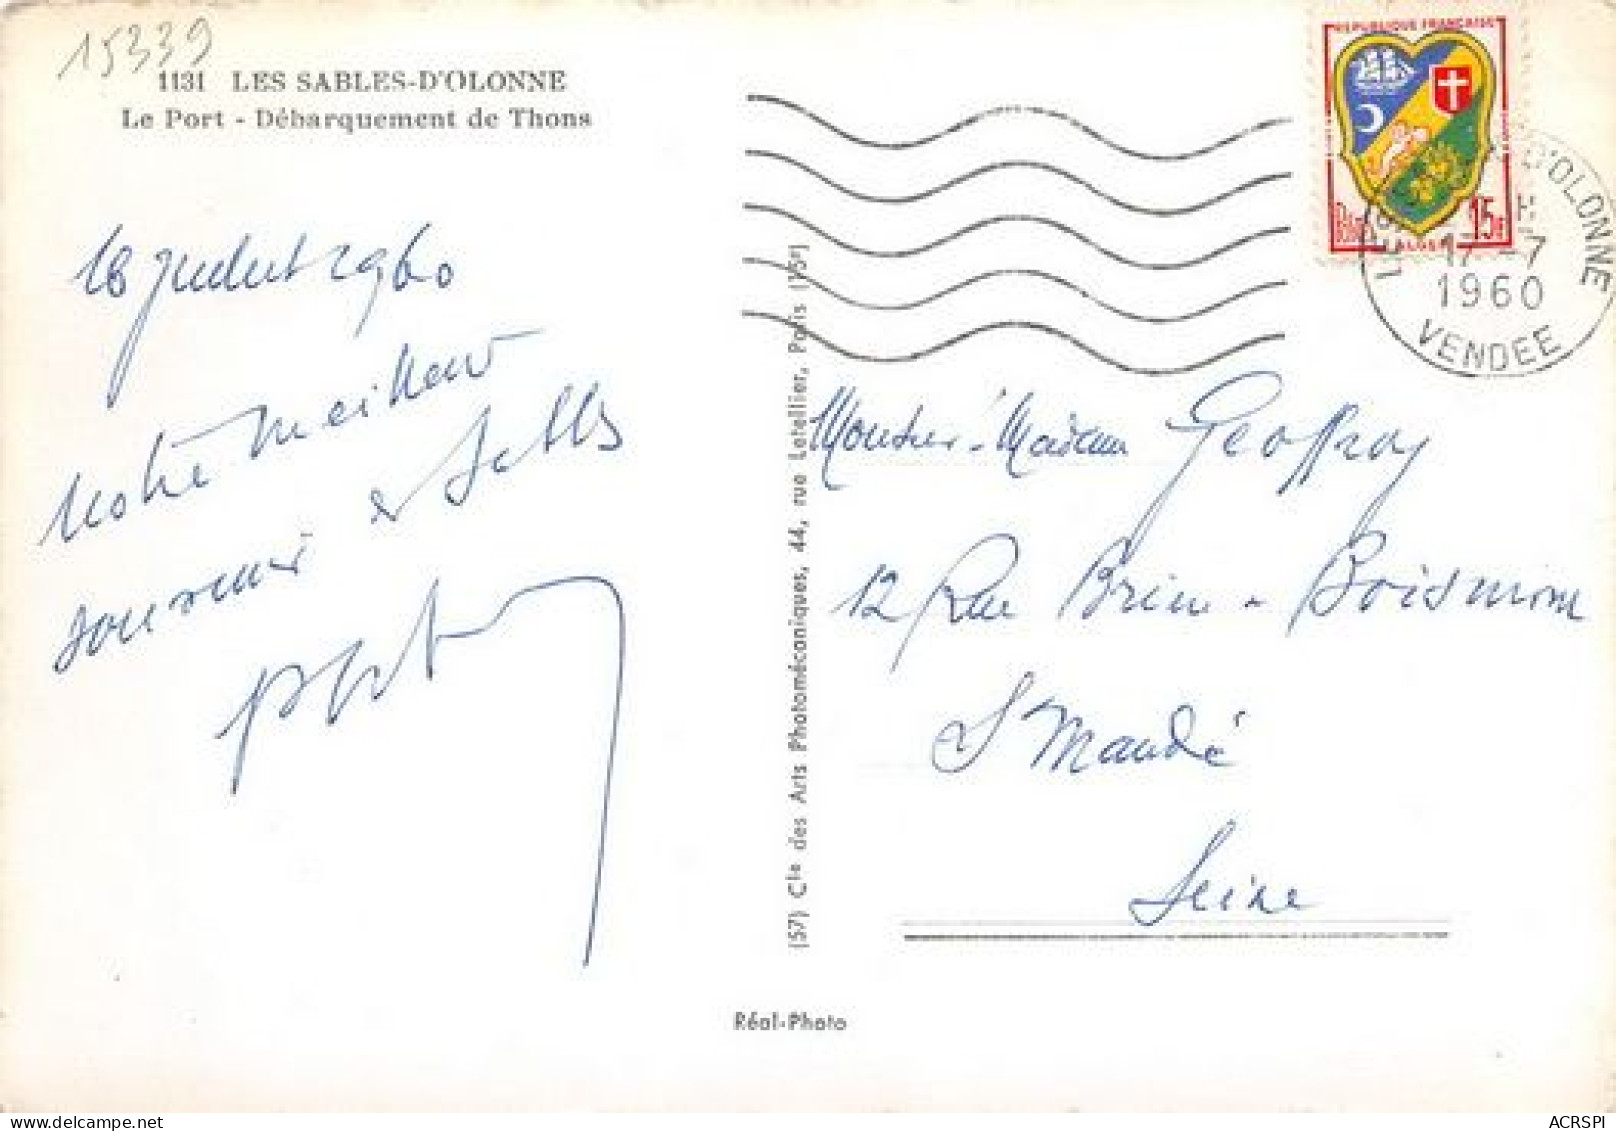 15339
1131 LES SABLES-D'OLONNE
Le Port - Débarquement de Thons
REPUBLIQUE FRANÇAISE
15F
D'OLONNE
17-7
1960
VENDEE
juillet 1960
Notre meilleur
souvenir
des Sables
(57) Cie des Arts Photomécaniques, 44, rue Letellier, Paris (15e)
Monsieur-Madame Geoffroy
12 Rue Brière-Boismont
St Mandé
Seine
Réal-Photo
ACRSPI